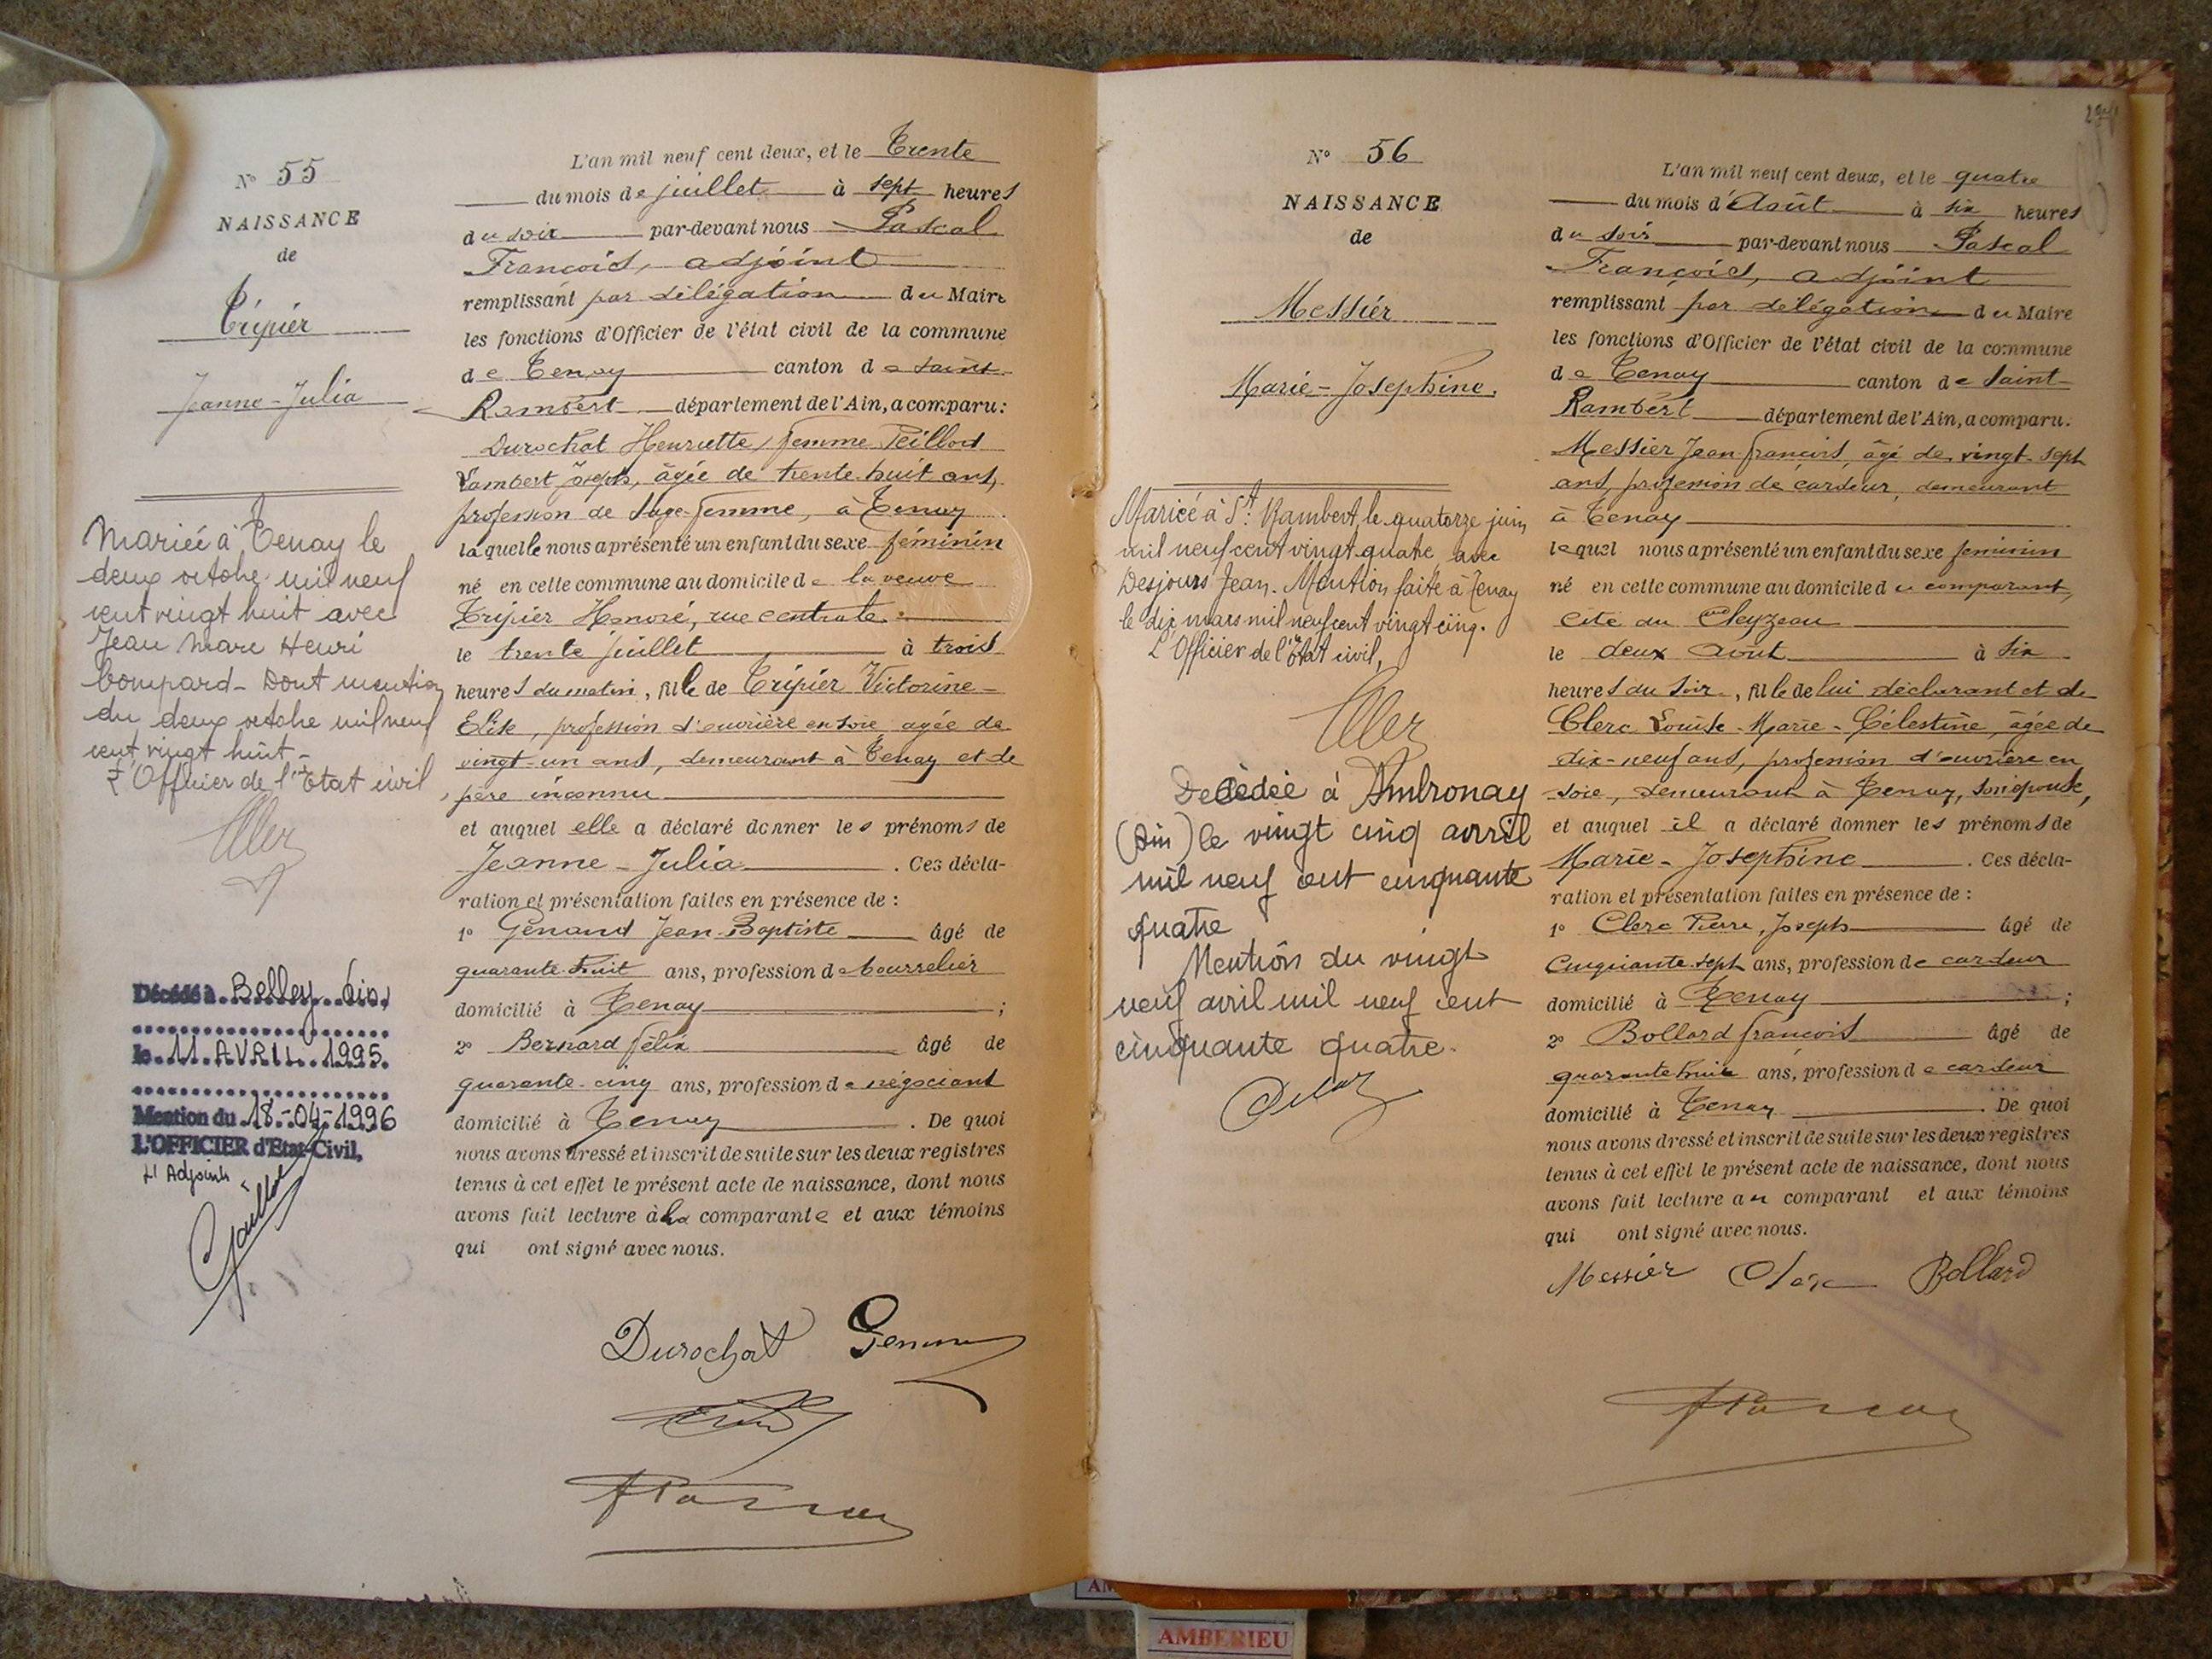 N° 55
NAISSANCE
de
Tripier
Jeanne-Julia
Mariée à Tenay le
deux octobre mil neuf
cent vingt huit avec
Jean Marc Henri
Compard - Dont mention
du deux octobre mil neuf
cent vingt huit -
L'Officier de l'Etat civil
Décédé à Belley Ain
le 11 AVRIL 1995.
Mention du 18-04-1996
L'OFFICIER d'Etat-Civil,
L'Adjoint
L'an mil neuf cent deux, et le Trente
du mois de juillet à sept heures
du soir par-devant nous Pascal
François, adjoint
remplissant par délégation du Maire
les fonctions d'Officier de l'état civil de la commune
de Tenay canton de Saint-
Rambert département de l'Ain, a comparu:
Durochat Henriette, femme Peillod
Lambert Joseph, âgée de trente huit ans,
profession de Sage-femme, à Tenay
laquelle nous a présenté un enfant du sexe féminin
né en cette commune au domicile de la veuve
Tripier Honoré, rue centrale.
le trente juillet à trois
heures du matin, fille de Tripier Victorine-
Elise, profession d'ouvrière en soie, agée de
vingt-un ans, demeurant à Tenay et de
père inconnu
et auquel elle a déclaré donner les prénoms de
Jeanne-Julia. Ces décla-
ration et présentation faites en présence de :
1° Génand Jean-Baptiste âgé de
quarante-huit ans, profession de bourrelier
domicilié à Tenay ;
2° Bernard félix âgé de
quarante-cinq ans, profession de négociant
domicilié à Tenay. De quoi
nous avons dressé et inscrit de suite sur les deux registres
tenus à cet effet le présent acte de naissance, dont nous
avons fait lecture à la comparante et aux témoins
qui ont signé avec nous.
Durochat
N° 56
NAISSANCE
de
Messier
Marie-Josephine.
Mariée à St. Rambert, le quatorze juin
mil neuf cent vingt quatre avec
Desjours Jean. Mention faite à Tenay
le dix mars mil neuf cent vingt cinq.
L'Officier de l'état civil,
Décédée à Ambronay
(Ain) le vingt cinq avril
mil neuf cent cinquante
quatre
Mention du vingt
neuf avril mil neuf cent
cinquante quatre.
L'an mil neuf cent deux, et le quatre
du mois d'Août à six heures
du soir par-devant nous Pascal
François, adjoint
remplissant par délégation du Maire
les fonctions d'Officier de l'état civil de la commune
de Tenay canton de Saint-
Rambert département de l'Ain, a comparu:
Messier Jean-françois, âgé de vingt-sept
ans, profession de cardeur, demeurant
à Tenay
lequel nous a présenté un enfant du sexe feminin
né en cette commune au domicile du comparant,
Cité du Cleyzeau
le deux Aout à six
heures du soir, fille de lui déclarant et de
Clerc Louise-Marie-Célestine, âgée de
dix-neuf ans, profession d'ouvrière en
soie, demeurant à Tenay, son épouse,
et auquel il a déclaré donner les prénoms de
Marie-Josephine. Ces décla-
ration et présentation faites en présence de :
1° Clerc Pierre, Joseph âgé de
Cinquante-sept ans, profession de cardeur
domicilié à Tenay ;
2° Bollard françois âgé de
quarante huit ans, profession de cardeur
domicilié à Tenay. De quoi
nous avons dressé et inscrit de suite sur les deux registres
tenus à cet effet le présent acte de naissance, dont nous
avons fait lecture au comparant et aux témoins
qui ont signé avec nous.
Messier Clerc Bollard
AMBERIEU